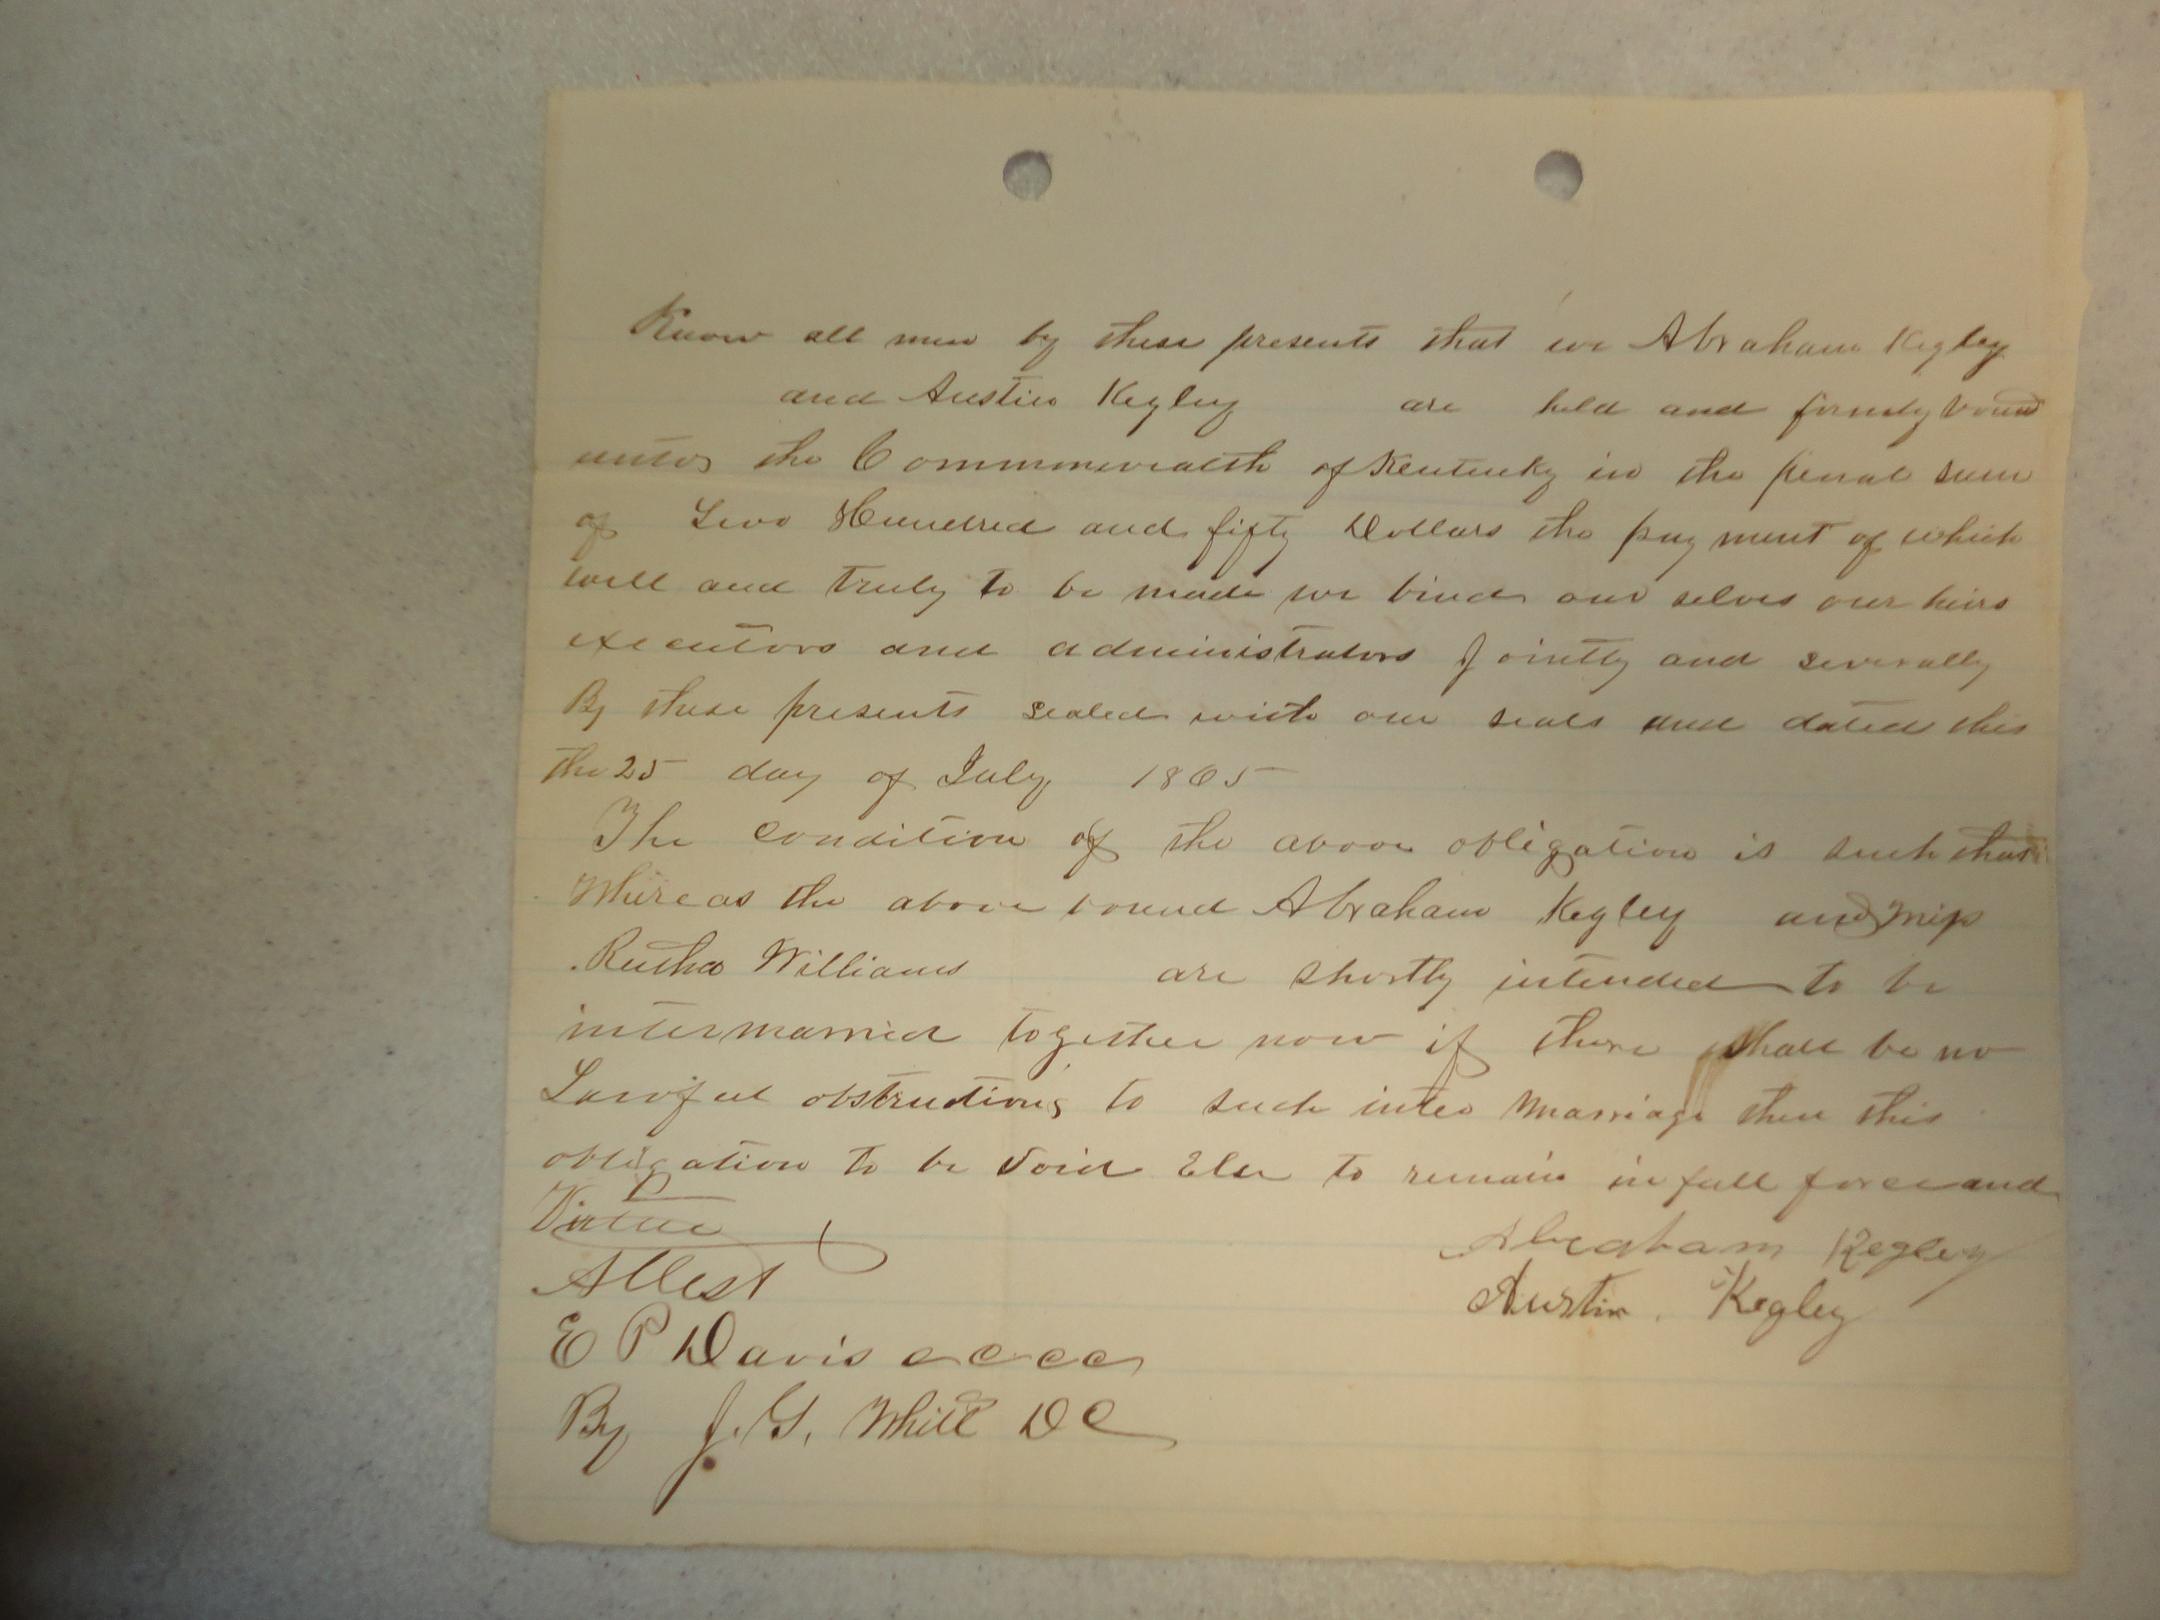 Know all men by these presents that we Abraham Kegley
and Austin Kegley are held and firmly bound
unto the Commonwealth of Kentucky in the penal sum
of Two Hundred and fifty Dollars the payment of which
well and truly to be made we bind our selves our heirs
executors and administrators Jointly and severally
By these presents sealed with our seals and dated this
the 25 day of July 1865
The condition of the above obligation is such that
Whereas the above bound Abraham Kegley and Miss
Rutha Williams are shortly intended to be
intermarried together now if there shall be no
Lawful obstructions to such inter marriage then this
obligation to be void Else to remain in full force and
Virtue
Abraham Kegley
Attest
Austin Kegley
E P Davis c c c c
By J. G. White D C